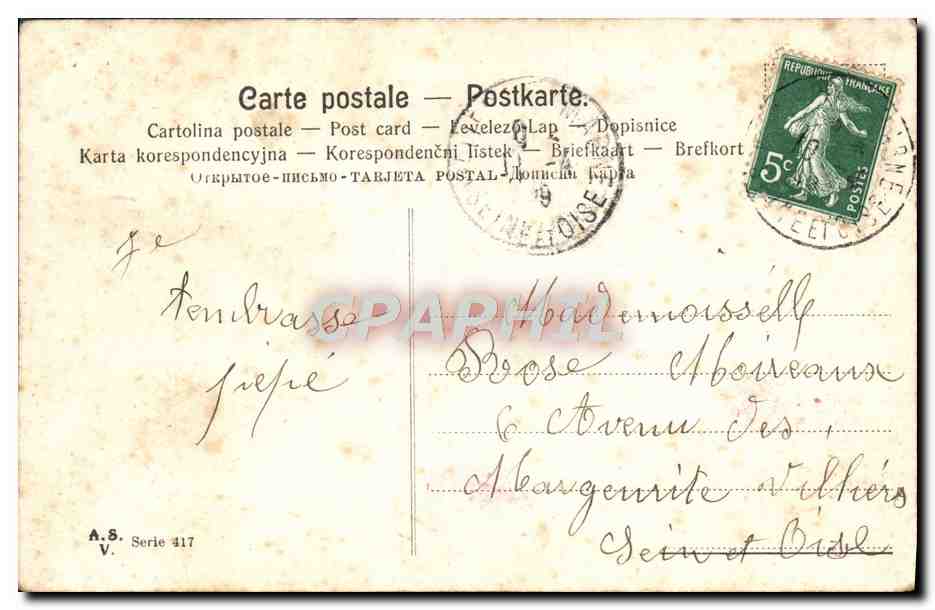 Carte postale — Postkarte.
Cartolina postale — Post card — Levelező-Lap — Dopisnice
Karta korespondencyjna — Korespondenční lístek — Briefkaart — Brefkort
Открытое-письмо - TARJETA POSTAL - Дописна Карта
REPUBLIQUE FRANÇAISE
5c
POSTES
SEINE ET OISE
ET OISE
Je
tendrasse
pepé
CPAPHIL
Mademoisselle
Rose Moireaux
6 Avenu des
Marguerite Villiers
Sein et Oise
A.S.
V.
Serie 417